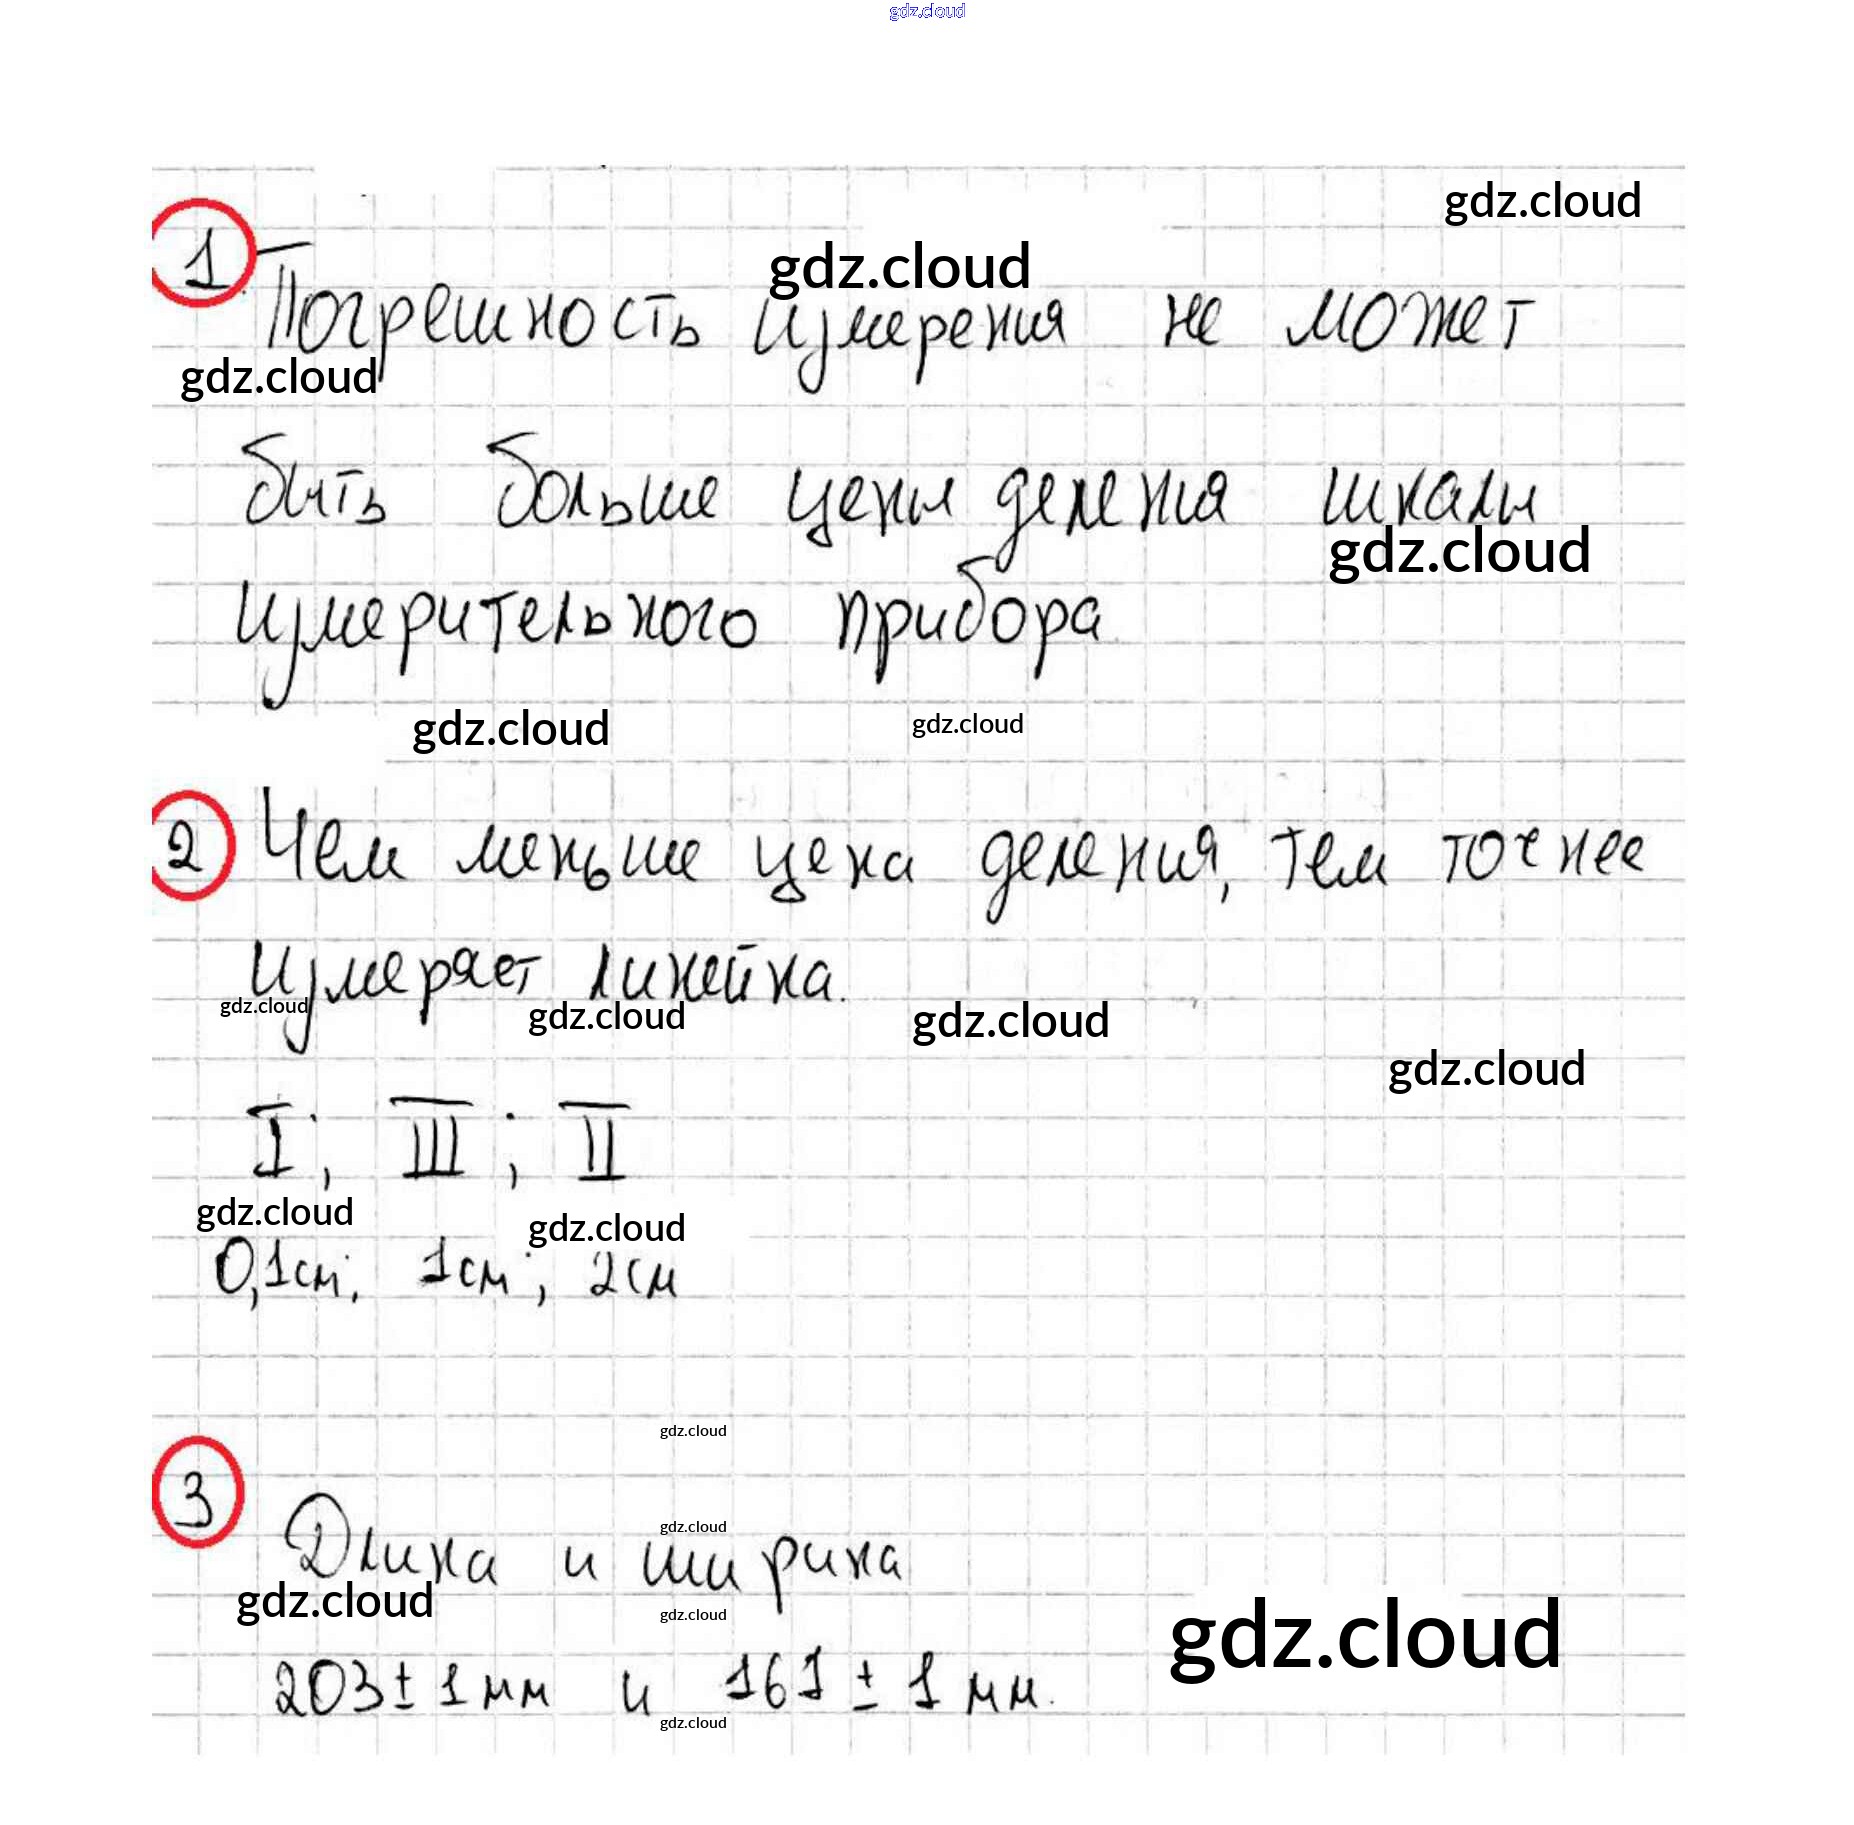 gdz.cloud
gdz.cloud
1 gdz.cloud
Погрешность измерения не может
gdz.cloud
быть больше цены деления шкалы
gdz.cloud
измерительного прибора
gdz.cloud gdz.cloud
2 Чем меньше цена деления, тем точнее
измеряет линейка.
gdz.cloud gdz.cloud gdz.cloud
gdz.cloud
I; III; II
gdz.cloud gdz.cloud
0,1см; 1см; 2см
gdz.cloud
3
gdz.cloud
Длина и ширина
gdz.cloud gdz.cloud gdz.cloud
203 ± 1 мм и 161 ± 1 мм.
gdz.cloud